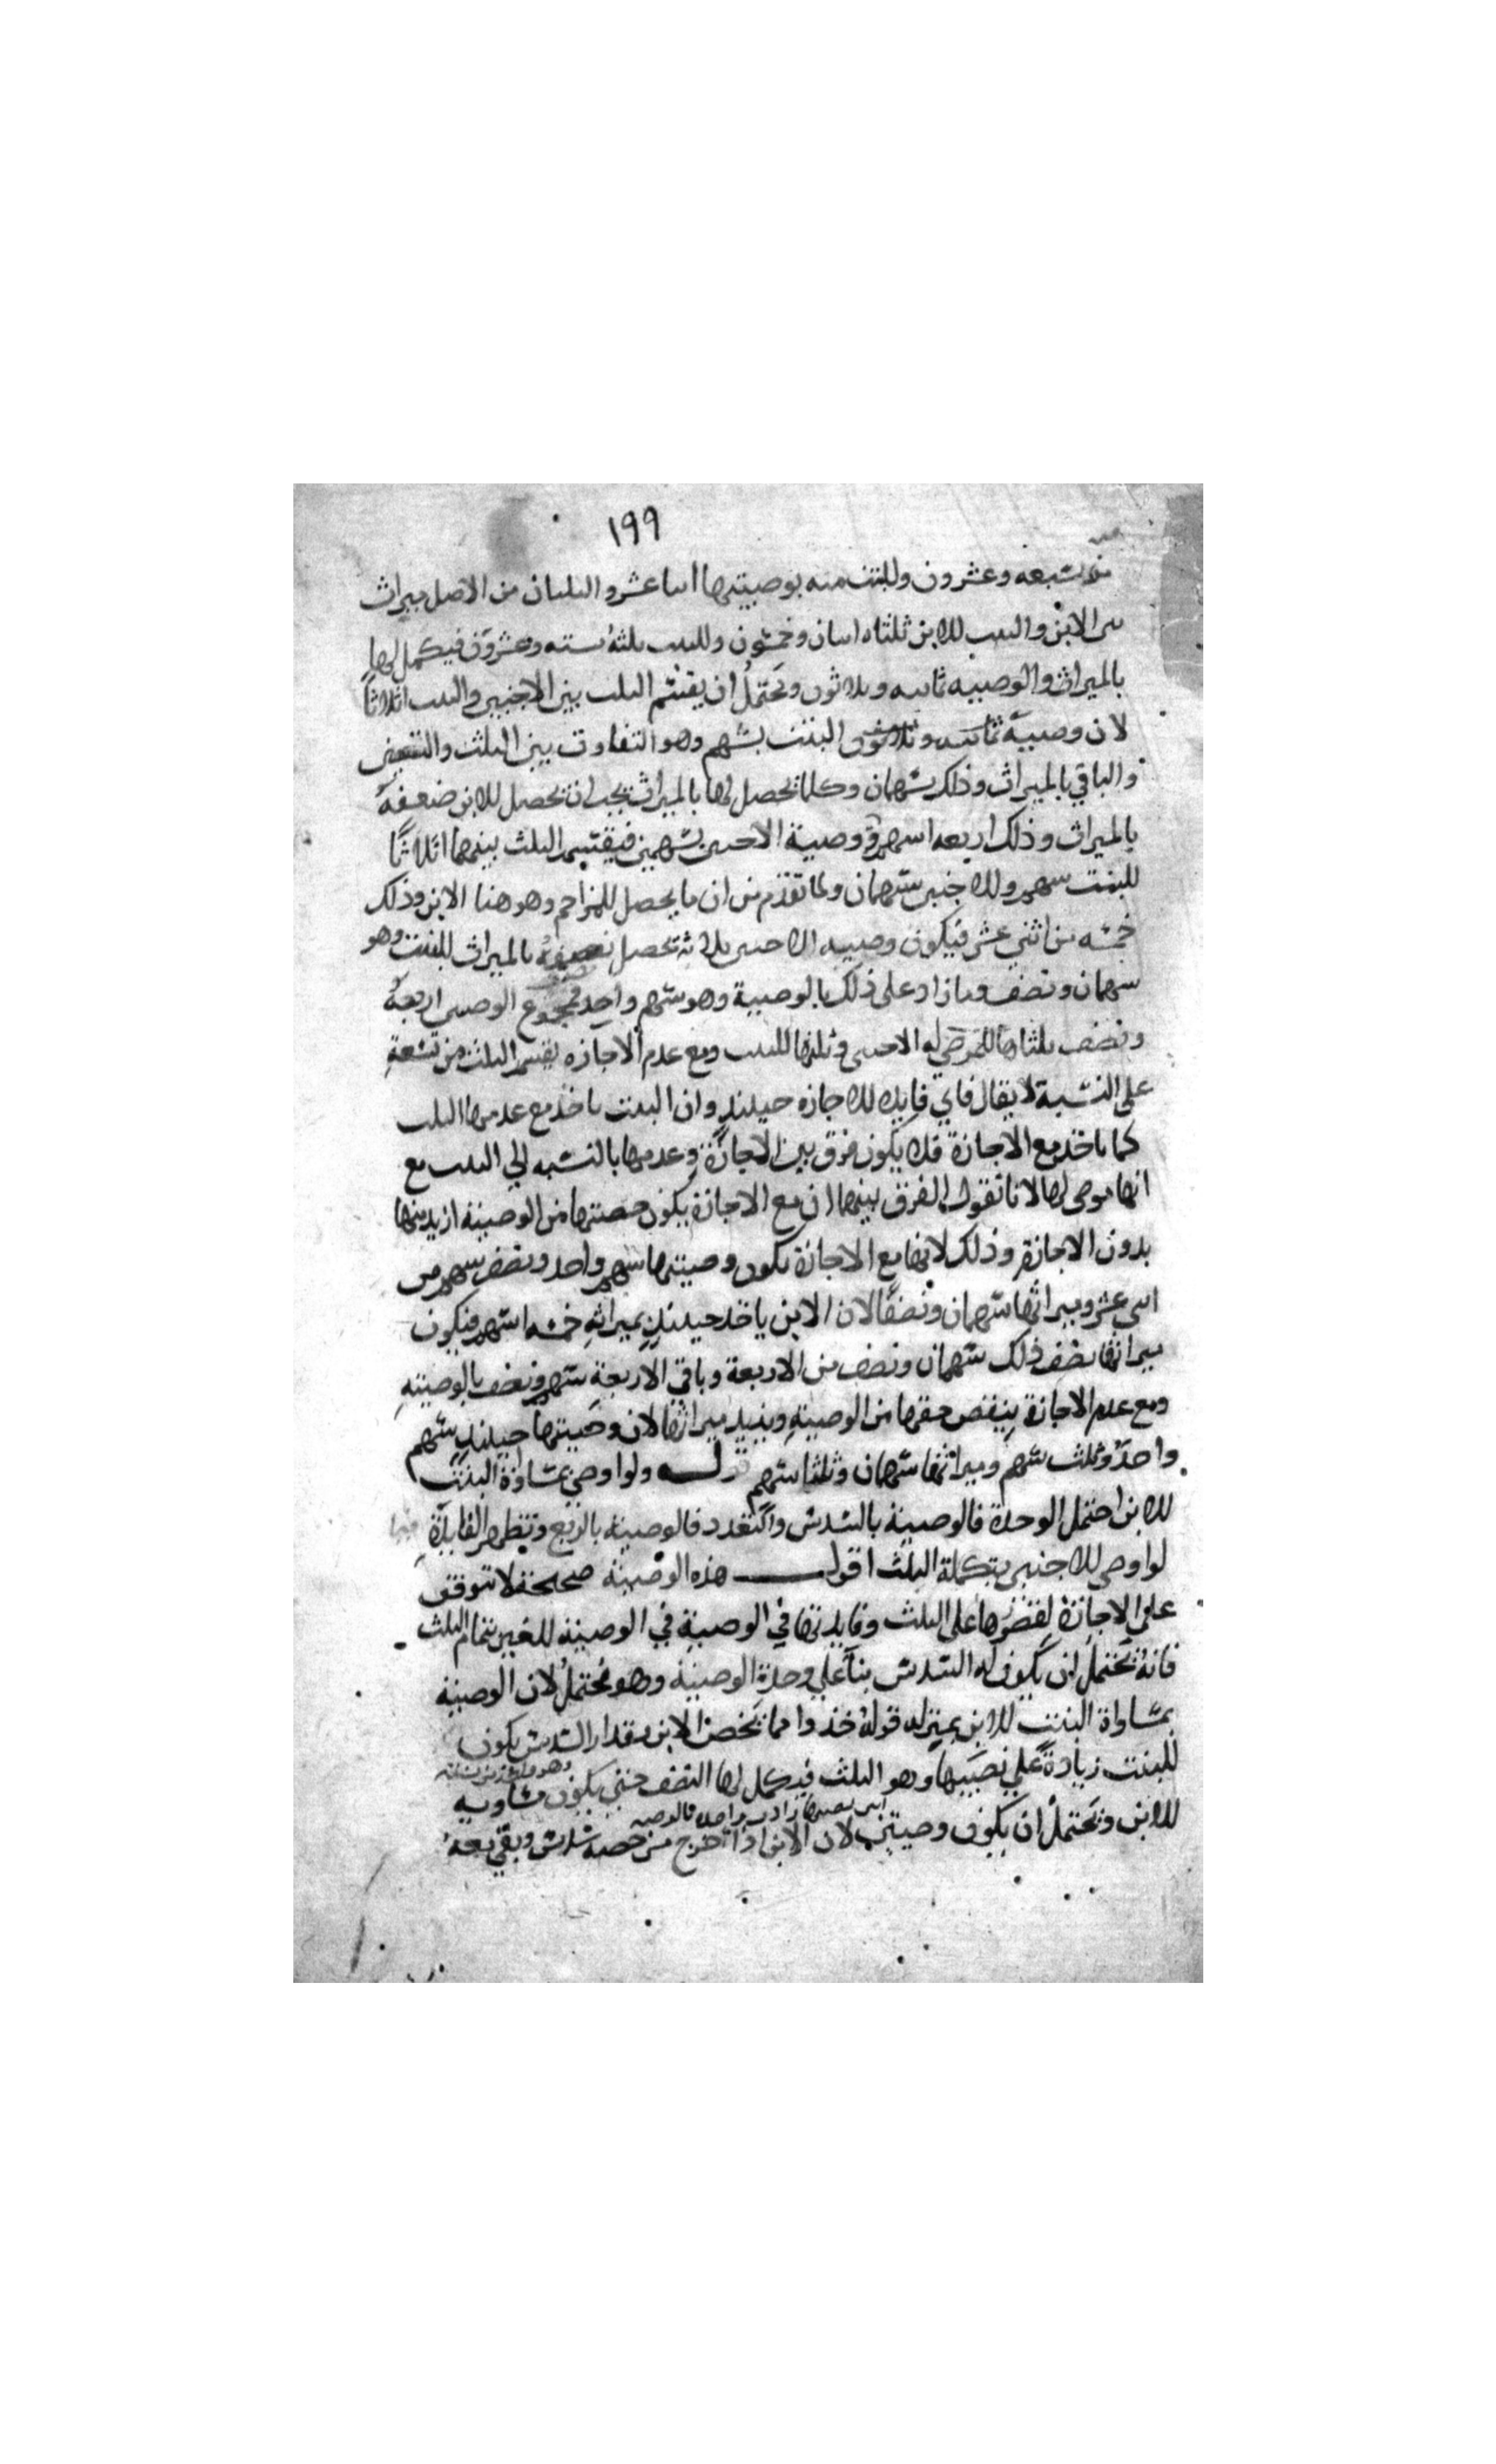 ١٩٩
منه سبعه وعشرون وللبنت منه بوصيتها اثنا عشر والثلثان من الاصل ميراث
بين الابن والبنت للابن ثلثاه اثنان وخمسون وللبنت ثلثه ستة وعشرون فيكمل لها
بالميراث والوصيه ثمانيه وثلاثون ويحتمل ان يقتسم الثلث بين الاجنبي والبنت اثلاثا
لان وصية البنت بسهم وهو التفاوت بين الثلث والنصف
والباقي بالميراث وذلك سهمان وكلما يحصل لها بالميراث يجب ان يحصل للابن ضعفه
بالميراث وذلك اربعه اسهم ووصية الاجنبي بسهمين فيقتسم الثلث بينهما اثلاثا
للبنت سهم وللاجنبي سهمان ولما تقدم من ان ما يحصل للمزاحم وهو هنا الابن وذلك
خمسه من اثني عشر فيكون وصيه الاجنبي ثلاثه تحصل نصفه بالميراث للبنت وهو
سهمان ونصف وما زاد على ذلك بالوصية وهو سهم واحد فمجموع الوصيتين اربعة
ونصف ثلثاها للموصى له الاجنبي وثلثها للبنت ومع عدم الاجازه يقسم الثلث من تسعة
على النسبة لا يقال فاي فايده للاجازه حينئذ وان البنت تاخذ مع عدمها الثلث
كما تاخذ مع الاجازة فلا يكون فرق بين الاجازة وعدمها بالنسبه الي البنت مع
انها موصى لها لانا نقول الفرق بينهما ان مع الاجازة يكون حصتها من الوصية ازيد منها
بدون الاجازة وذلك لانها مع الاجازة تكون وصيتها سهم واحد ونصف سهم من
اثني عشر وميراثها سهمان ونصفا لان الابن ياخذ حينئذ بميراثه خمسه اسهم فيكون
ميراثها نصف ذلك سهمان ونصف من الاربعة وباقي الاربعة سهم ونصف بالوصية
ومع عدم الاجازة ينقص حقها من الوصية ويزيد ميراثها لان وصيتها حينئذ سهم
واحد وثلث سهم وميراثها سهمان وثلثا سهم قوله ولو اوصي بمساواة البنت
للابن احتمل الوحدة فالوصية بالسدس والتعدد فالوصية بالربع وتظهر الفايدة فيما
لو اوصى للاجنبي بتكملة الثلث اقول هذه الوصية صحيحة لا تتوقف
علي الاجازة لقصورها على الثلث وفايدتها في الوصية في الوصية للغير بتمام الثلث
فانه يحتمل ان يكون له السدس بناء علي وحدة الوصية وهو محتمل لان الوصية
بمساواة البنت للابن بمنزله قوله خذوا مما يخص الابن مقدار السدس يكون
للبنت زيادة علي نصيبها وهو الثلث فيكمل لها النصف حتي يكون مساويه
للابن ويحتمل ان يكون وصيتين لان الابن اذا اخرج من حصه سدس وبقي معه